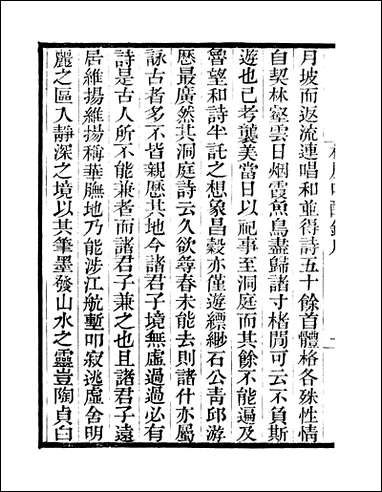 月坡而返流連唱和並得詩五十餘首體格各殊性情
自契林壑雲日烟霞魚鳥盡歸諸寸楮閒可云不負斯
遊也已考襲美當日以祀事至洞庭而其餘不能遍及
魯望和詩半託之想象昌穀亦僅遊縹緲石公靑邱游
歷最廣然其洞庭詩云久欲尋春未能去則諸什亦屬
詠古者多不皆親歷其地今諸君子境無虛過過必有
詩是古人所不能兼者而諸君子兼之也且諸君子遠
居維揚維揚稱華膴地乃能涉江航塹叩寂逃虛舍明
麗之區入靜深之境以其筆墨發山水之靈豈陶貞白